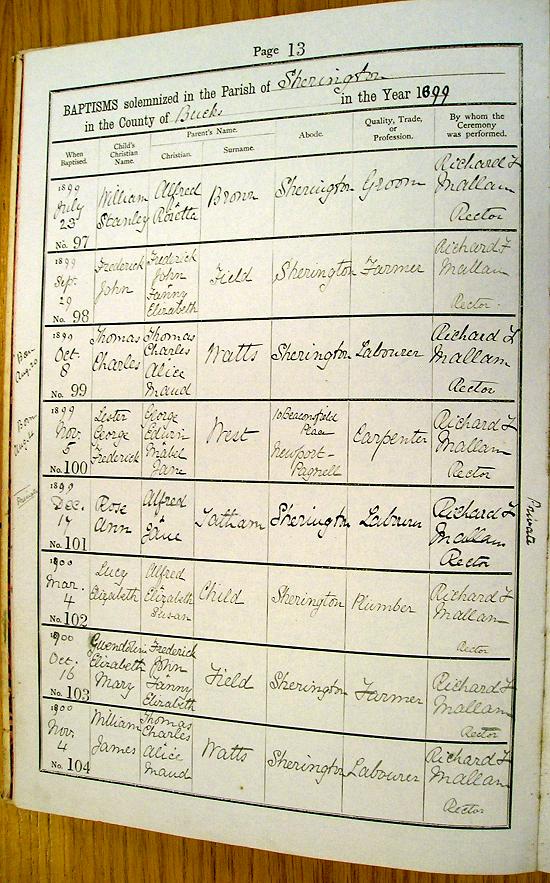 Page 13
BAPTISMS solemnized in the Parish of Sherington
in the County of Bucks in the Year 1899
When Baptised. Child's Christian Name. Parent's Name. Christian. Surname. Abode. Quality, Trade, or Profession. By whom the Ceremony was performed.
1899 July 23 No. 97 William Stanley Alfred & Rosetta Brown Sherington Groom Richard F Mallam Rector
1899 Sep. 29 No. 98 Frederick John Frederick John & Fanny Elizabeth Field Sherington Farmer Richard F Mallam Rector
Born Aug
1899 Oct 8 No. 99 Thomas Charles Thomas Charles Alice Maud Watts Sherington Labourer Richard F Mallam Rector
Born Aug
1899 Nov. 5 No. 100 Lester George Frederick George Edwin Mabel Jane West 10 Beaconsfield Place Newport-Pagnell Carpenter Richard F Mallam Rector
1899 Dec. 17 No. 101 Rose Ann Alfred & Jane Tatham Sherington Labourer Richard F Mallam Rector
Private
1900 Mar. 4 No. 102 Lucy Elizabeth Alfred Elizabeth Susan Child Sherington Plumber Richard F Mallam Rector
1900 Oct. 16 No. 103 Gwendolin Elizabeth Mary Frederick John & Fanny Elizabeth Field Sherington Farmer Richard F Mallam Rector
1900 Nov. 4 No. 104 William James Thomas Charles Alice Maud Watts Sherington Labourer Richard F Mallam Rector